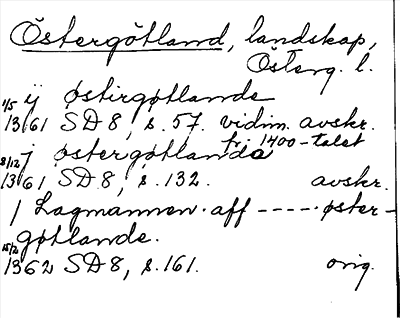 Östergötland, landskap,
Österg. l.
1/5 ij østirgøtlande
1361 SD 8, s. 57. vidim. avskr.
fr. 1400-talet
8/12 j østergøtlande
1361 SD 8, s. 132. avskr.
/ Lagmannen. aff ----- øster-
gøtlande.
15/2
1362 SD 8, s. 161. orig.